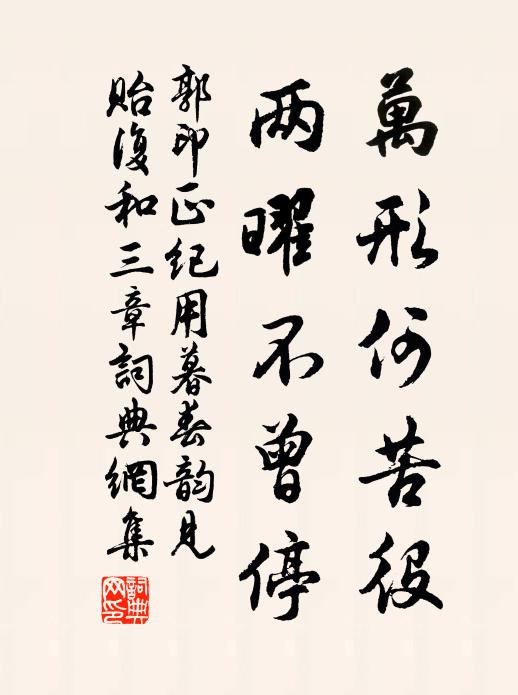 萬形何苦役
两曜不曾停
郭印正纪用暮春韵见
贻復和三章詞典網集
詞典网印